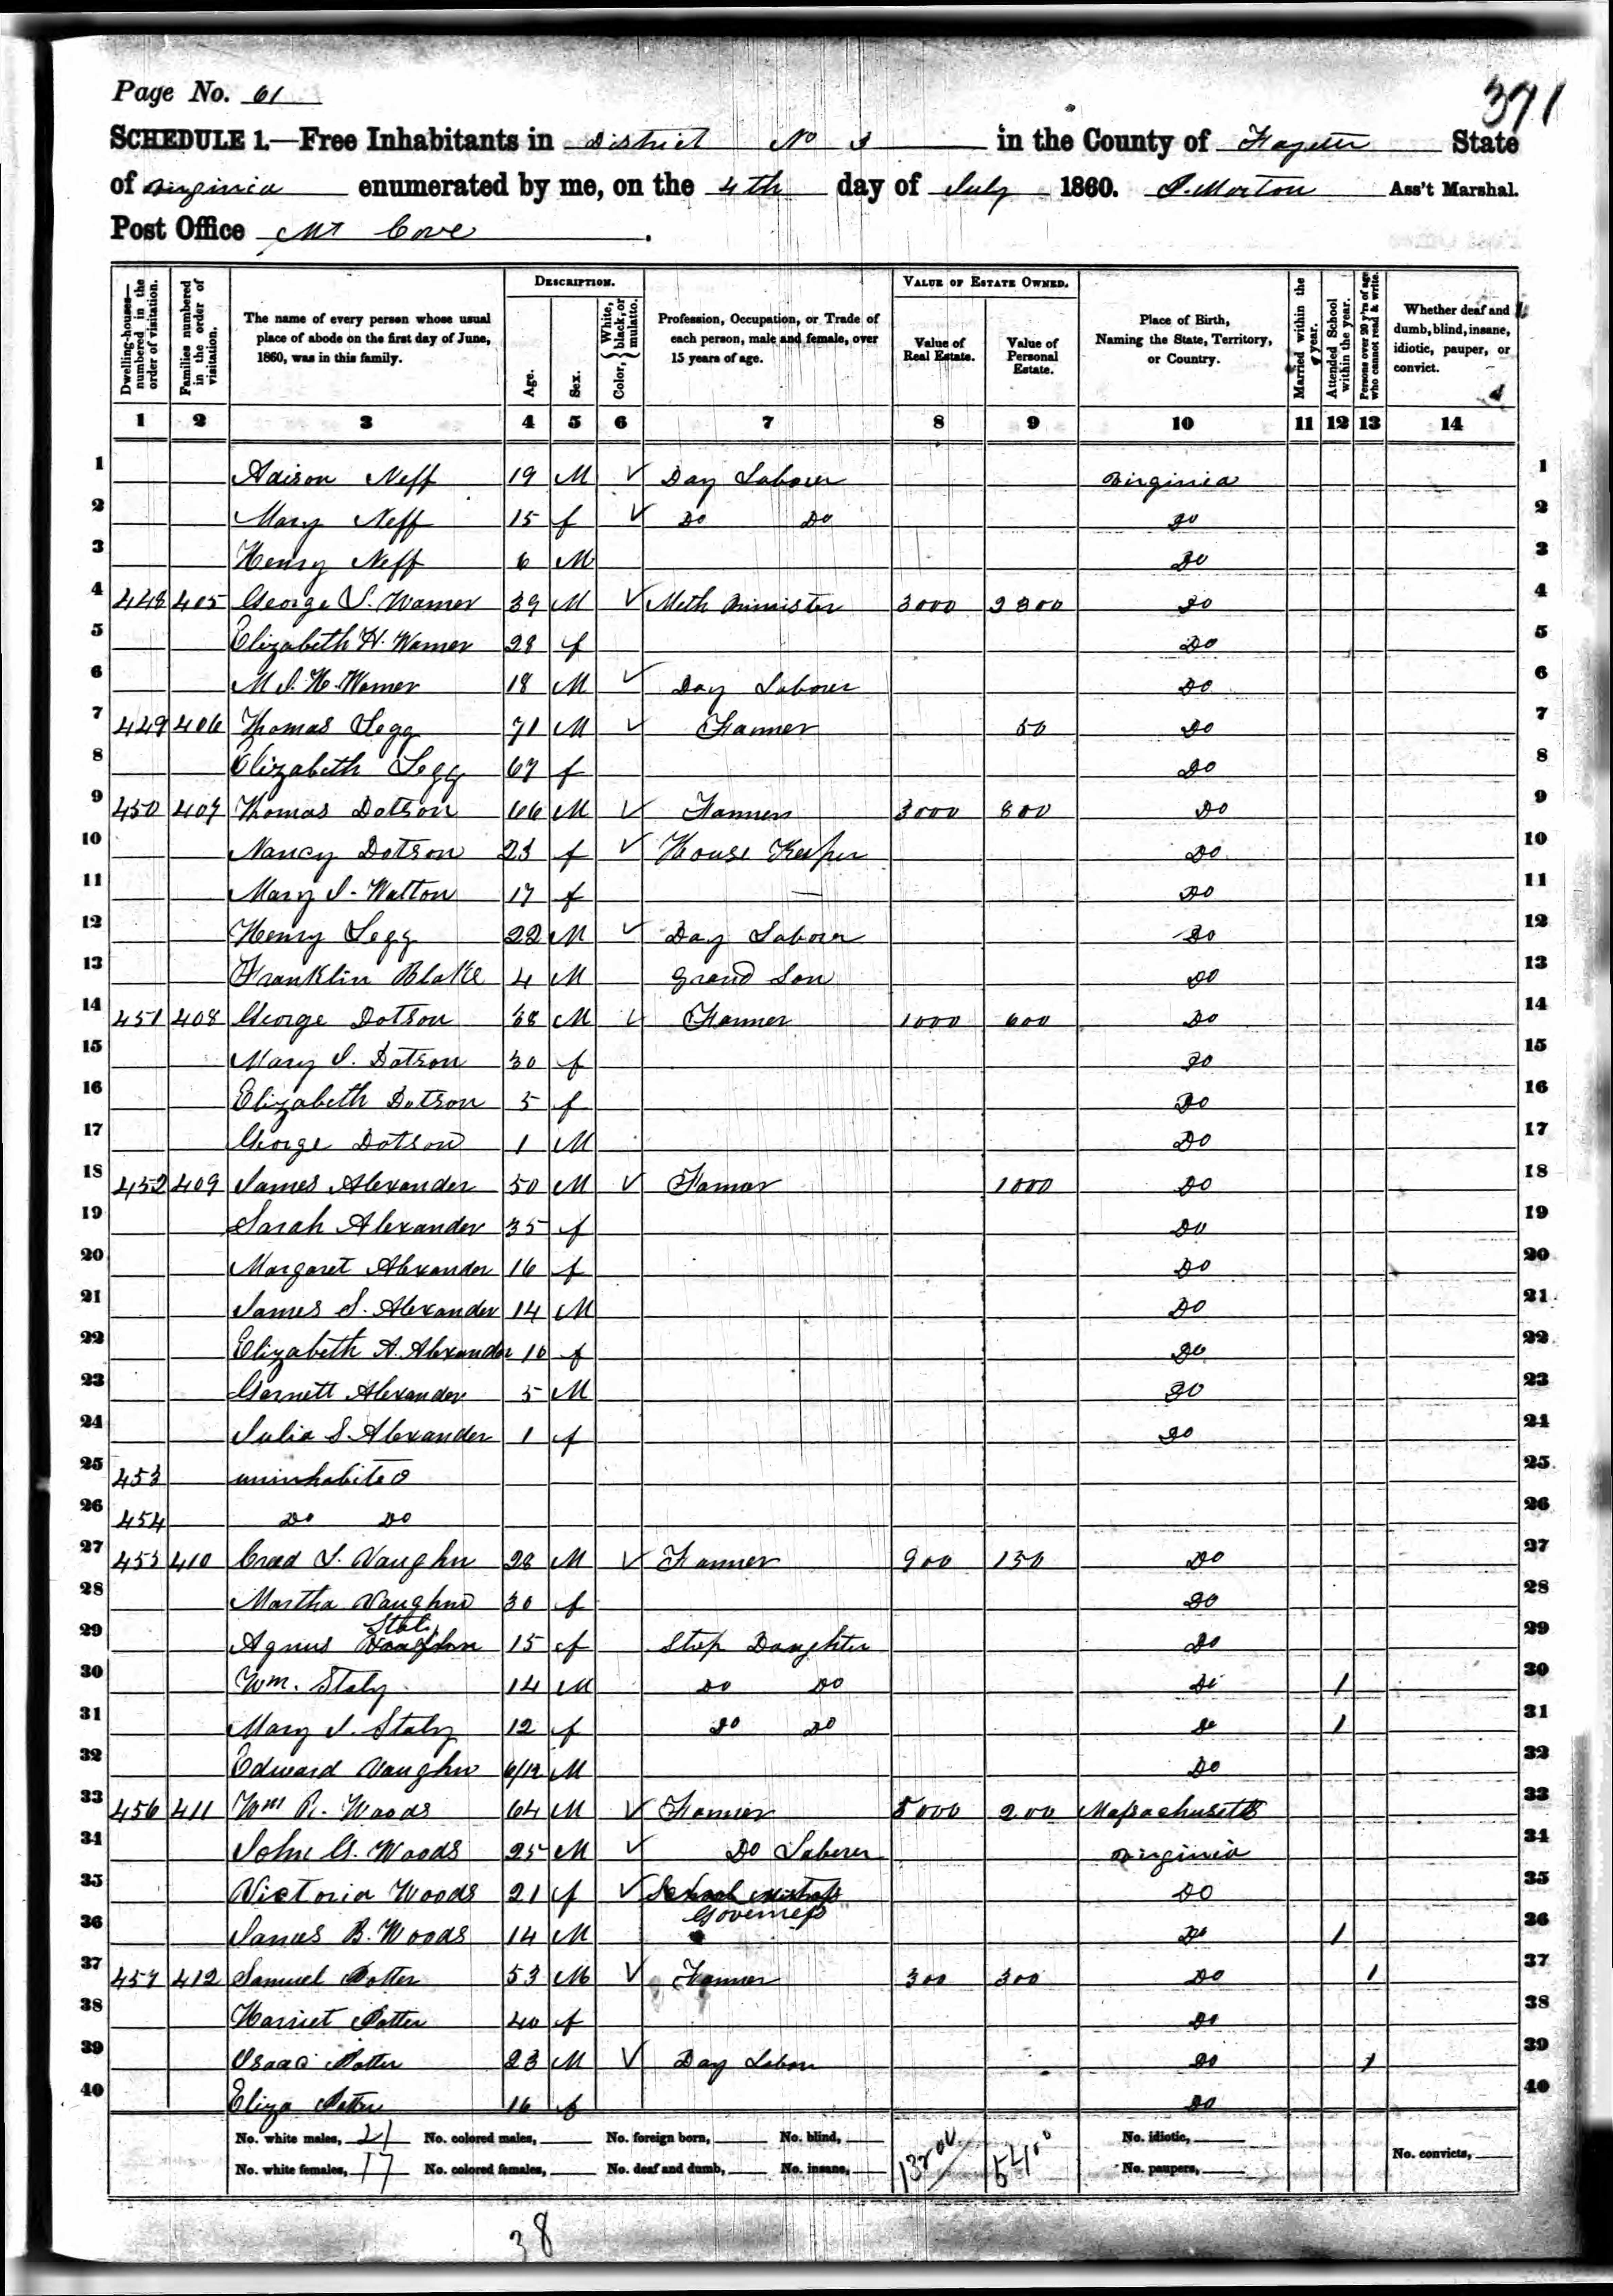 Page No. 61
371
SCHEDULE 1.—Free Inhabitants in District No 3 in the County of Fayette State
of Virginia enumerated by me, on the 4th day of July 1860. P. Morton Ass't Marshal.
Post Office Mt Cove.
Dwelling-houses—numbered in the order of visitation. Families numbered in the order of visitation. The name of every person whose usual place of abode on the first day of June, 1860, was in this family. DESCRIPTION. Age. Sex. Color, {White, black, or mulatto. Profession, Occupation, or Trade of each person, male and female, over 15 years of age. VALUE OF ESTATE OWNED. Value of Real Estate. Value of Personal Estate. Place of Birth, Naming the State, Territory, or Country. Married within the year. Attended School within the year. Persons over 20 y'rs of age who cannot read & write. Whether deaf and dumb, blind, insane, idiotic, pauper, or convict.
1 2 3 4 5 6 7 8 9 10 11 12 13 14
1 Adison Neff 19 M ✓ Day Laborer Virginia 1
2 Mary Neff 15 f ✓ Do Do Do 2
3 Henry Neff 6 M Do 3
4 448 405 George S. Warner 39 M ✓ Meth Minister 3000 2300 Do 4
5 Elizabeth H. Warner 28 f Do 5
6 M S. H. Warner 18 M ✓ Day Laborer Do 6
7 449 406 Thomas Legg 71 M ✓ Farmer 50 Do 7
8 Elizabeth Legg 67 f Do 8
9 450 407 Thomas Dotson 66 M ✓ Farmer 3000 800 Do 9
10 Nancy Dotson 23 f ✓ House Keeper Do 10
11 Mary J. Walton 17 f — Do 11
12 Henry Legg 22 M ✓ Day Laborer Do 12
13 Franklin Blake 4 M Grand Son Do 13
14 451 408 George Dotson 38 M ✓ Farmer 1000 600 Do 14
15 Mary J. Dotson 30 f Do 15
16 Elizabeth Dotson 5 f Do 16
17 George Dotson 1 M Do 17
18 452 409 James Alexander 50 M ✓ Famar 1000 Do 18
19 Sarah Alexander 35 f Do 19
20 Margaret Alexander 16 f Do 20
21 James S. Alexander 14 M Do 21
22 Elizabeth A. Alexander 10 f Do 22
23 Garnett Alexander 5 M Do 23
24 Julia S. Alexander 1 f Do 24
25 453 uninhabited 25
26 454 Do Do 26
27 455 410 Cred S. Vaughn 28 M ✓ Farmer 900 150 Do 27
28 Martha Vaughn 30 f Do 28
29 Agnus Vaughn Staly 15 f Step Daughter Do 29
30 Wm. Staly 14 M Do Do Do 1 30
31 Mary J. Staly 12 f Do Do Do 1 31
32 Edward Vaughn 6/12 M Do 32
33 456 411 Wm R. Woods 64 M ✓ Farmer 5000 200 Massachusetts 33
34 John G. Woods 25 M ✓ Do Laborer Virginia 34
35 Victoria Woods 21 f ✓ School Mistress Do 35
Governess
36 James B. Woods 14 M Do 1 36
37 457 412 Samuel Potter 53 M ✓ Farmer 300 300 Do 1 37
38 Harriet Potter 40 f Do 38
39 Isaac Potter 23 M ✓ Day Labor Do 1 39
40 Eliza Potter 16 f Do 40
No. white males, 21 No. colored males, No. foreign born, No. blind, 13200 5400 No. idiotic,
No. white females, 17 No. colored females, No. deaf and dumb, No. insane, No. paupers, No. convicts,
38